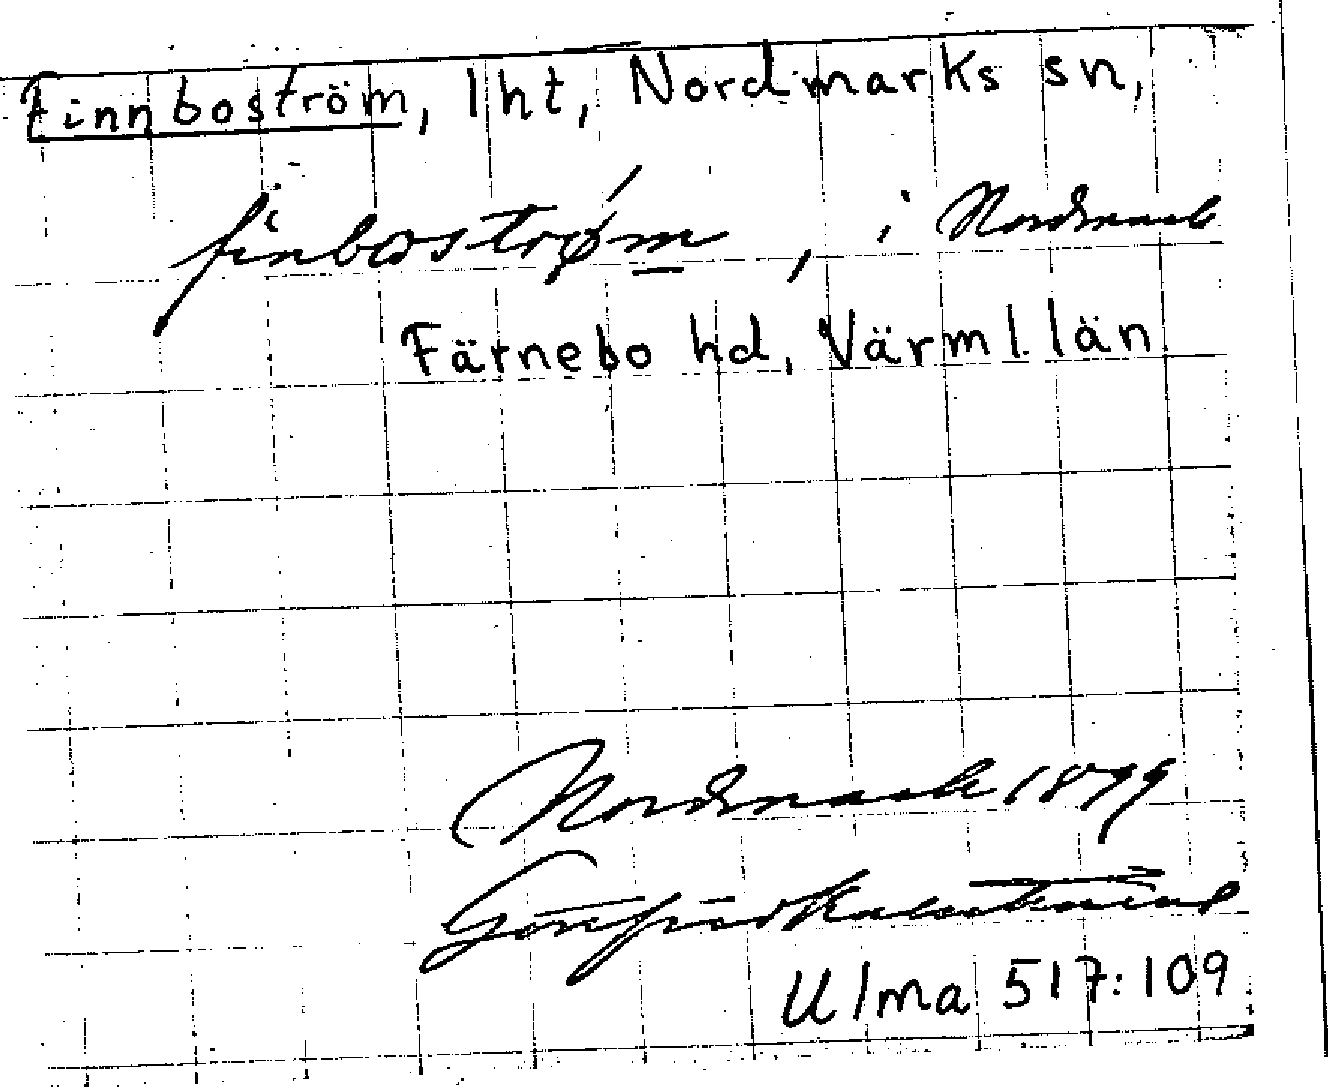 Finnboström, lht, Nordmarks sn,
finboström, i Nordmark
Färnebo hd, Värml. län
Nordmark 1899
Götfrid Kallstenius
Ulma 517:109